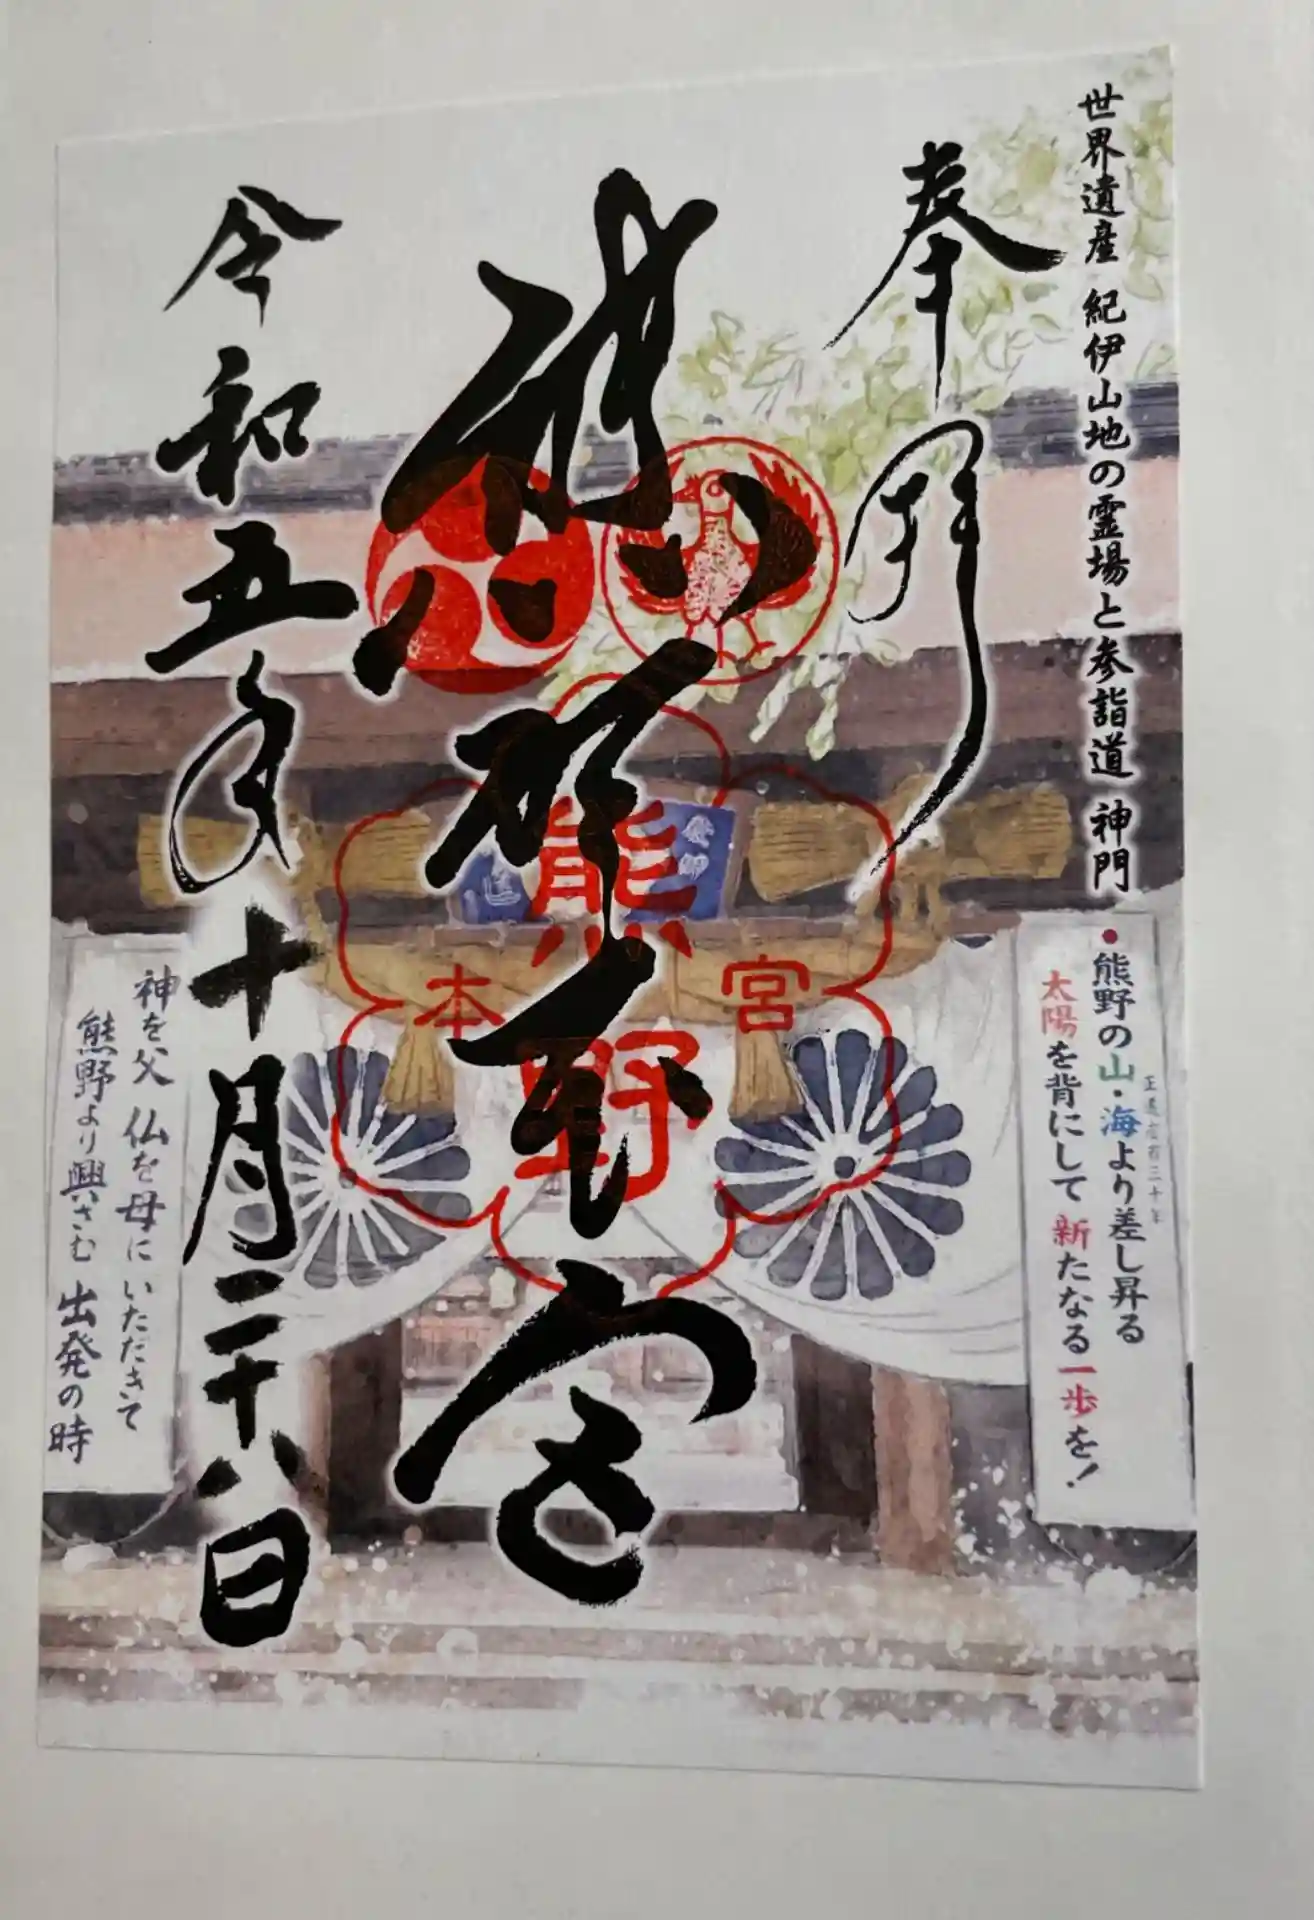 世界遺産 紀伊山地の霊場と参詣道 神門
奉拝
・熊野の山・海より差し昇る
太陽を背にして 新たなる一歩を！
熊野本宮
熊野
本宮
令和五年十月二十八日
神を父 仏を母に いただきて
熊野より興さむ 出発の時